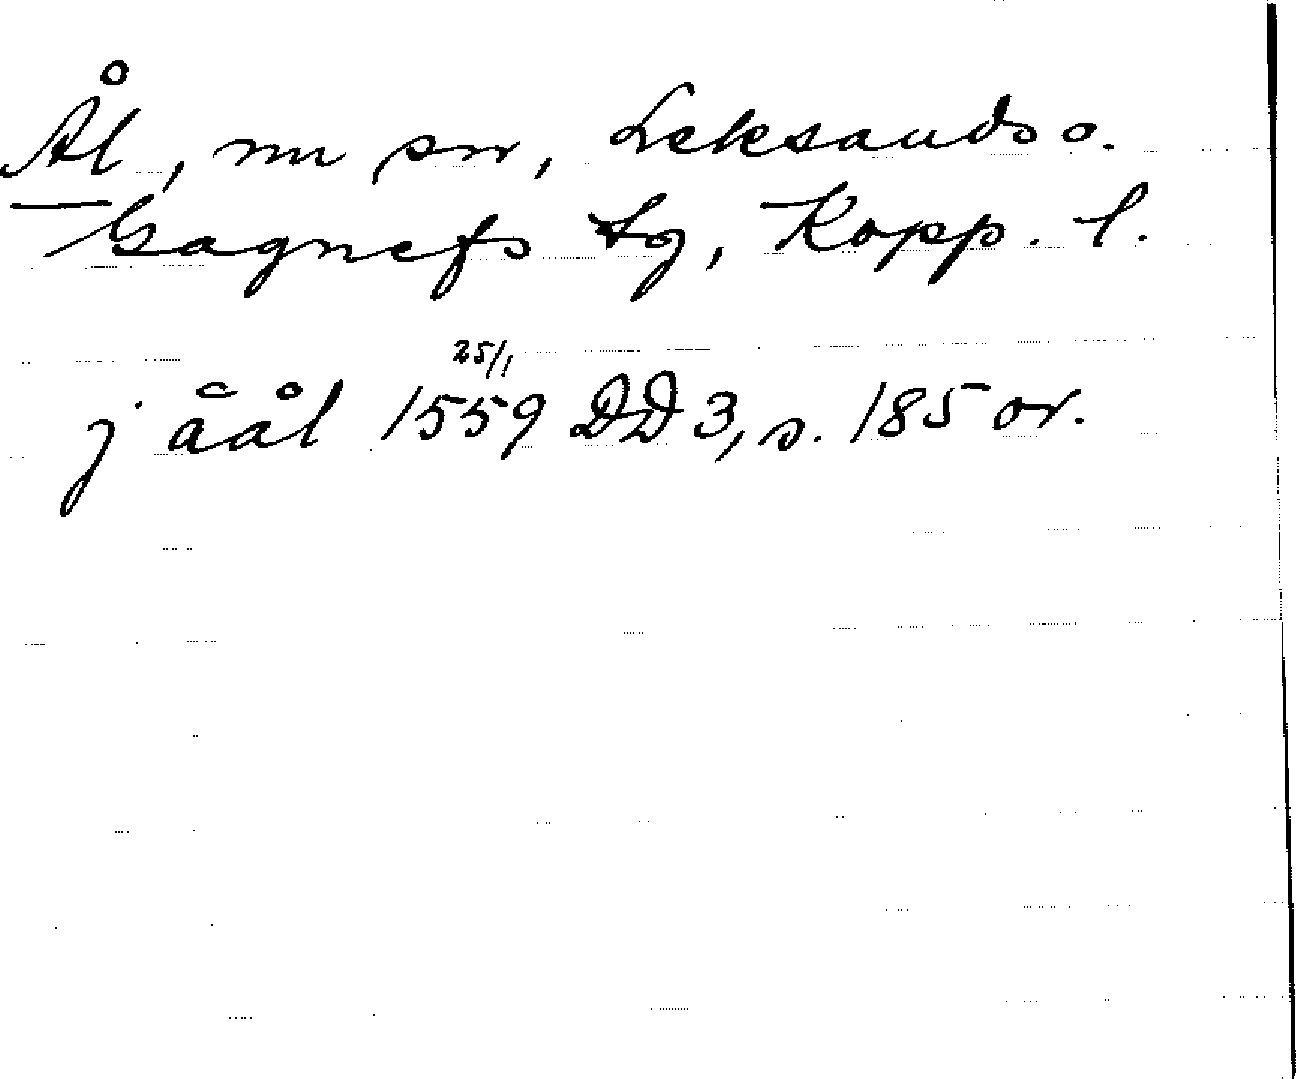 Ål, nu sn, Leksands o.
Gagnefs tg, Kopp. l.
j åål 25/1 1559 DD 3, s. 185 or.